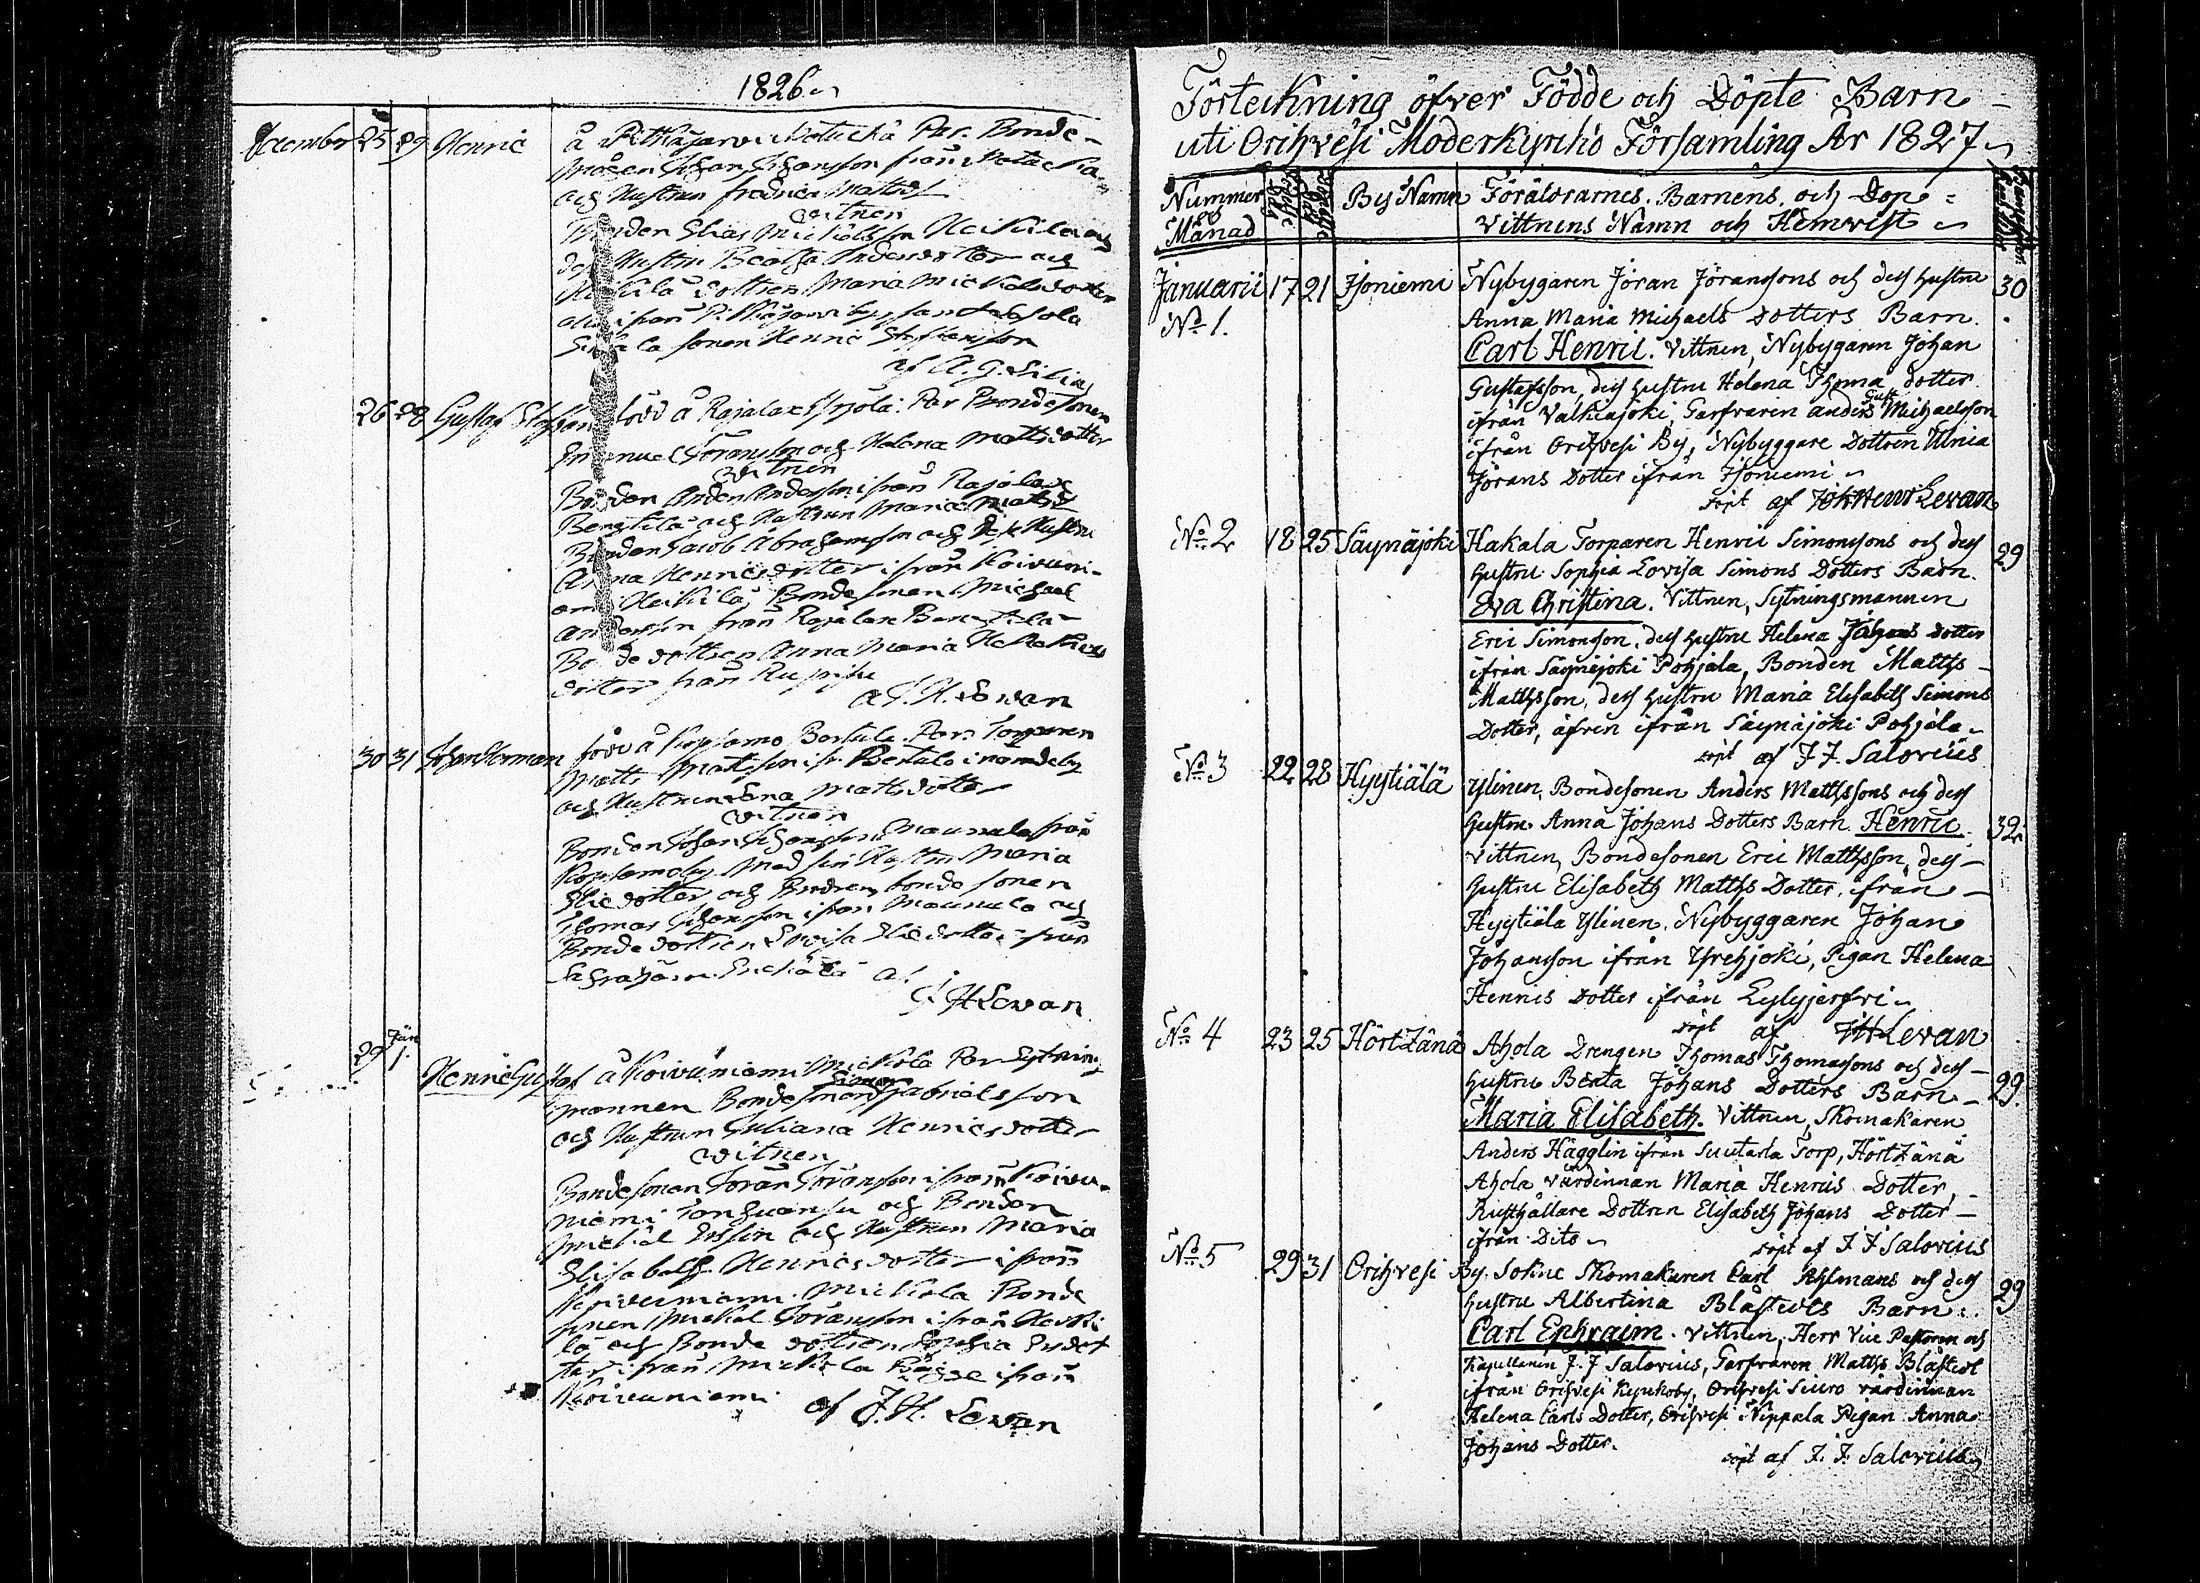 1826
December 25 29 Henric
å Pitkäjärvi Par. Bonde-
mågen Johan Johansson från
och Hustrun Fredrica Matsd:
Vitnen
Bonden Elias Heikilä och
dess Hustru Beatha Andersdotter och
Heikilä dottren Maria Mickelsdotter
alla ifrån Pitkäjärvi by,
sonen Henric Staffansson
af A. G. Lilia
26 28 Gustaf Staffan född å Rajalax Yrjölä: Par Bondesonen
Emanuel Göransson och Helena Mattsdotter
Vitnen
Bonden Anders Andersson ifrån Rajalax
Bengtilä och Hustrun Maria Matsd
Bonden Jacob Abrahamsson och dess Hustru
Anna Henricsdotter ifrån Koivuni-
emi Heikilä, Bondesonen Michael
Andersson från Rajalax Bengtilä
Bonde dottren Anna Maria
dotter från
af J. H. Levan
30 31 Johan Herman född å Koplamo Bertula. Par: Torparen
Matts Mattsson ifr. Bertula i nämde by
och Hustrun Lena Mattsdotter
Vitnen
Bonden Johan Johansson Maunula från
Koplamo by med sin Hustru Maria
Eliedotter och Brodren bonde sonen
Thomas Johansson ifrån Maunula och
Bonde dottren Lovisa Eliedotter från
af
J. H Levan
29 Jan 1. Henric Gustaf å Koivuniemi Mickola Par Sytning
mannen Bondesonen Simon Gabrielsson
och Hustrun Juliana Henricsdotter
Vitnen
Bondesonen Göran Göransson ifrån Koivu-
niemi och Bonden
Mickel Ersson och Hustrun Maria
Elisabeth Henricsdotter ifrån
Koivuniemi Mickola Bonde
sonen Mickel Göransson ifrån Heiki
lä och Bonde dottren Sophia
ter ifrån Mickola ifrån
Koivuniemi
af J. H. Levan
Förteckning öfver Födde och Döpte Barn
uti Orihvesi Moderkyrko Församling År 1827
Nummer
och
Månad
By Namn
Föräldrarnes. Barnens. och Dop-
Vittnens Namn och Hemvist
Januarii 17 21 Isoniemi Nybygaren Jöran Jöranssons och dess hustru 30
No 1. Anna Maria Michaels Dotters Barn.
Carl Henric. Vittnen, Nybygaren Johan
Gustafsson, dess hustru Helena Thoma dotter
ifrån Valkiajoki, Garfvaren Anders Gust Michaelsson
ifrån Orihvesi By, Nybyggare Dottren Ulrica
Jörans Dotter ifrån Isoniemi
döpt af Joh Henr Levan
No 2 18 25 Säynäjoki Hakala Torparen Henric Simonssons och dess 29
hustru Sophia Lovisa Simons Dotters Barn.
Eva Christina. Vittnen, Sytningsmannen
Eric Simonsson, dess hustru Helena Johans dotter
ifrån Säynäjoki Pohjala, Bonden Matths
Matthsson, dess hustru Maria Elisabeth Simons
Dotter, äfven ifrån Säynäjoki Pohjala
döpt af J. J. Salovius
No 3 22 28 Hyytiälä Ylinen, Bondesonen Anders Matthssons och dess
hustru Anna Johans Dotters Barn Henric. 32
Vittnen, Bondesonen Eric Matthsson, dess
hustru Elisabeth Matths Dotter, ifrån
Hyytiälä Ylinen. Nybyggaren Johan
Johansson ifrån Yrehjoki, Pigan Helena
Henrics Dotter ifrån Lylyjerfvi
döpt af JHLevan
No 4 23 25 Hörtzänä Ahola Drengen Thomas Thomassons och dess
hustru Beata Johans Dotters Barn 29
Maria Elisabeth. Vittnen, Skomakaren
Anders Hägglin ifrån Suutarla Torp, Hörtzänä
Ahola värdinnan Maria Henrics Dotter,
Rusthållare Dottren Elisabeth Johans Dotter
ifrån Dito
döpt af J J Salovius
No 5 29 31 Orihvesi By. Sokne Skomakaren Carl Ahlmans och dess 29
hustru Albertina Blåstedts Barn.
Carl Ephraim. Vittnen, Herr Vice Pastoren och
Kapellanen J. J Salovius, Garfvaren Matths Blåstedt
ifrån Orihvesi Kyrkoby, Orihvesi Siuro värdinnan
Helena Carls Dotter, Orihvesi Nippala Pigan Anna
Johans Dotter.
döpt af J. J. Salovius